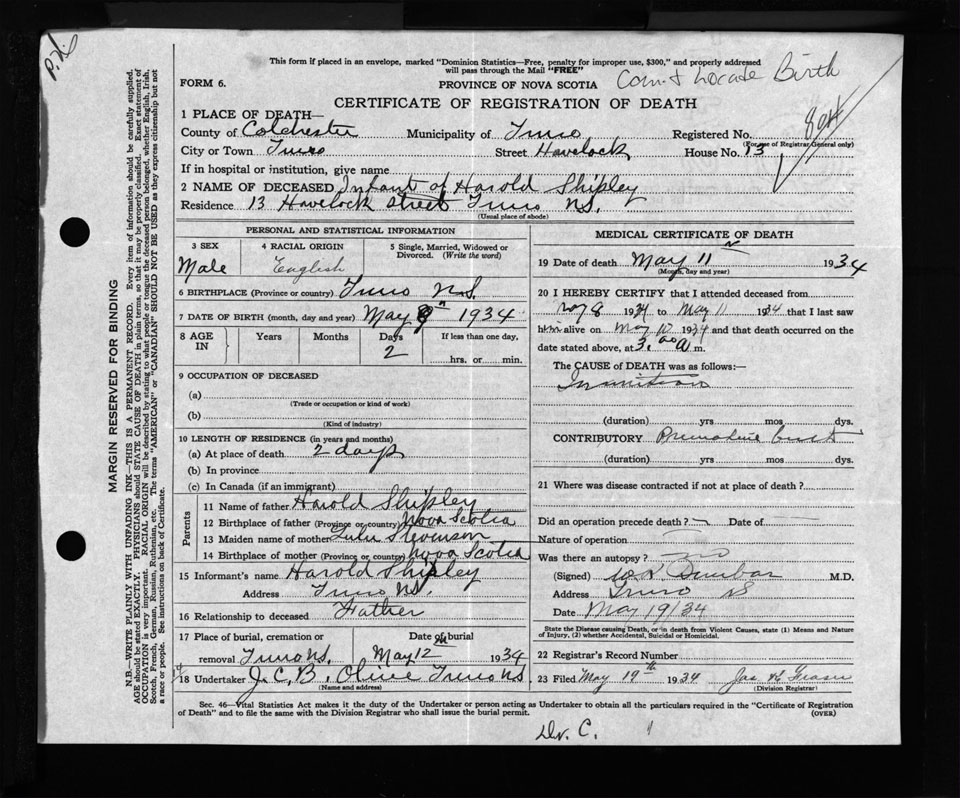 This form if placed in an envelope, marked "Dominion Statistics—Free, penalty for improper use, $300," and properly addressed
will pass through the Mail "FREE"
FORM 6.
PROVINCE OF NOVA SCOTIA
Birth
CERTIFICATE OF REGISTRATION OF DEATH
1 PLACE OF DEATH—
County of Colchester Municipality of Truro Registered No. 804
(For use of Registrar General only)
City or Town Truro Street Havelock House No. 13
If in hospital or institution, give name
2 NAME OF DECEASED Infant of Harold Shipley
Residence 13 Havelock Street Truro N.S.
(Usual place of abode)
PERSONAL AND STATISTICAL INFORMATION
3 SEX 4 RACIAL ORIGIN 5 Single, Married, Widowed or Divorced. (Write the word)
Male English
6 BIRTHPLACE (Province or country) Truro N.S.
7 DATE OF BIRTH (month, day and year) May 9th 1934
8 AGE IN Years Months Days If less than one day,
2 hrs. or min.
9 OCCUPATION OF DECEASED
(a)
(Trade or occupation or kind of work)
(b)
(Kind of industry)
10 LENGTH OF RESIDENCE (in years and months)
(a) At place of death 2 days
(b) In province
(c) In Canada (if an immigrant)
Parents
11 Name of father Harold Shipley
12 Birthplace of father (Province or country) Nova Scotia
13 Maiden name of mother Lulu Stevenson
14 Birthplace of mother (Province or country) Nova Scotia
15 Informant's name Harold Shipley
Address Truro N.S.
16 Relationship to deceased Father
17 Place of burial, cremation or removal Truro N.S. Date of burial May 12th 1934
18 Undertaker J. C. B. Olive Truro NS
(Name and address)
MEDICAL CERTIFICATE OF DEATH
19 Date of death May 11 1934
(Month, day and year)
20 I HEREBY CERTIFY that I attended deceased from
May 8 1934 to May 11 1934 that I last saw
him alive on May 10 1934 and that death occurred on
date stated above, at 3.00 a m.
The CAUSE of DEATH was as follows:—
Inanition
(duration) yrs mos dys.
CONTRIBUTORY Premature birth
(duration) yrs mos dys.
21 Where was disease contracted if not at place of death?
Did an operation precede death? — Date of —
Nature of operation
Was there an autopsy? no
(Signed) Dunbar M.D.
Address Truro NS
Date May 19/34
State the Disease causing Death, or in death from Violent Causes, state (1) Means and Nature of Injury, (2) whether Accidental, Suicidal or Homicidal.
22 Registrar's Record Number
23 Filed May 19th 1934 Jas
(Division Registrar)
Sec. 46—Vital Statistics Act makes it the duty of the Undertaker or person acting as Undertaker to obtain all the particulars required in the "Certificate of Registration
of Death" and to file the same with the Division Registrar who shall issue the burial permit. (OVER)
Dr. C.
MARGIN RESERVED FOR BINDING
N.B.—WRITE PLAINLY WITH UNFADING INK—THIS IS A PERMANENT RECORD. Every item of information should be carefully supplied.
AGE should be stated EXACTLY. PHYSICIANS should STATE CAUSE OF DEATH in plain terms, so that it may be properly classified. Exact statement of
OCCUPATION is very important. RACIAL ORIGIN will be described by stating to what people or tongue the deceased person belonged, whether English, Irish,
Scotch, French, German, Russian, Ruthenian, etc. The terms "AMERICAN" or "CANADIAN" SHOULD NOT BE USED as they express citizenship but not
a race or people. See instructions on back of Certificate.